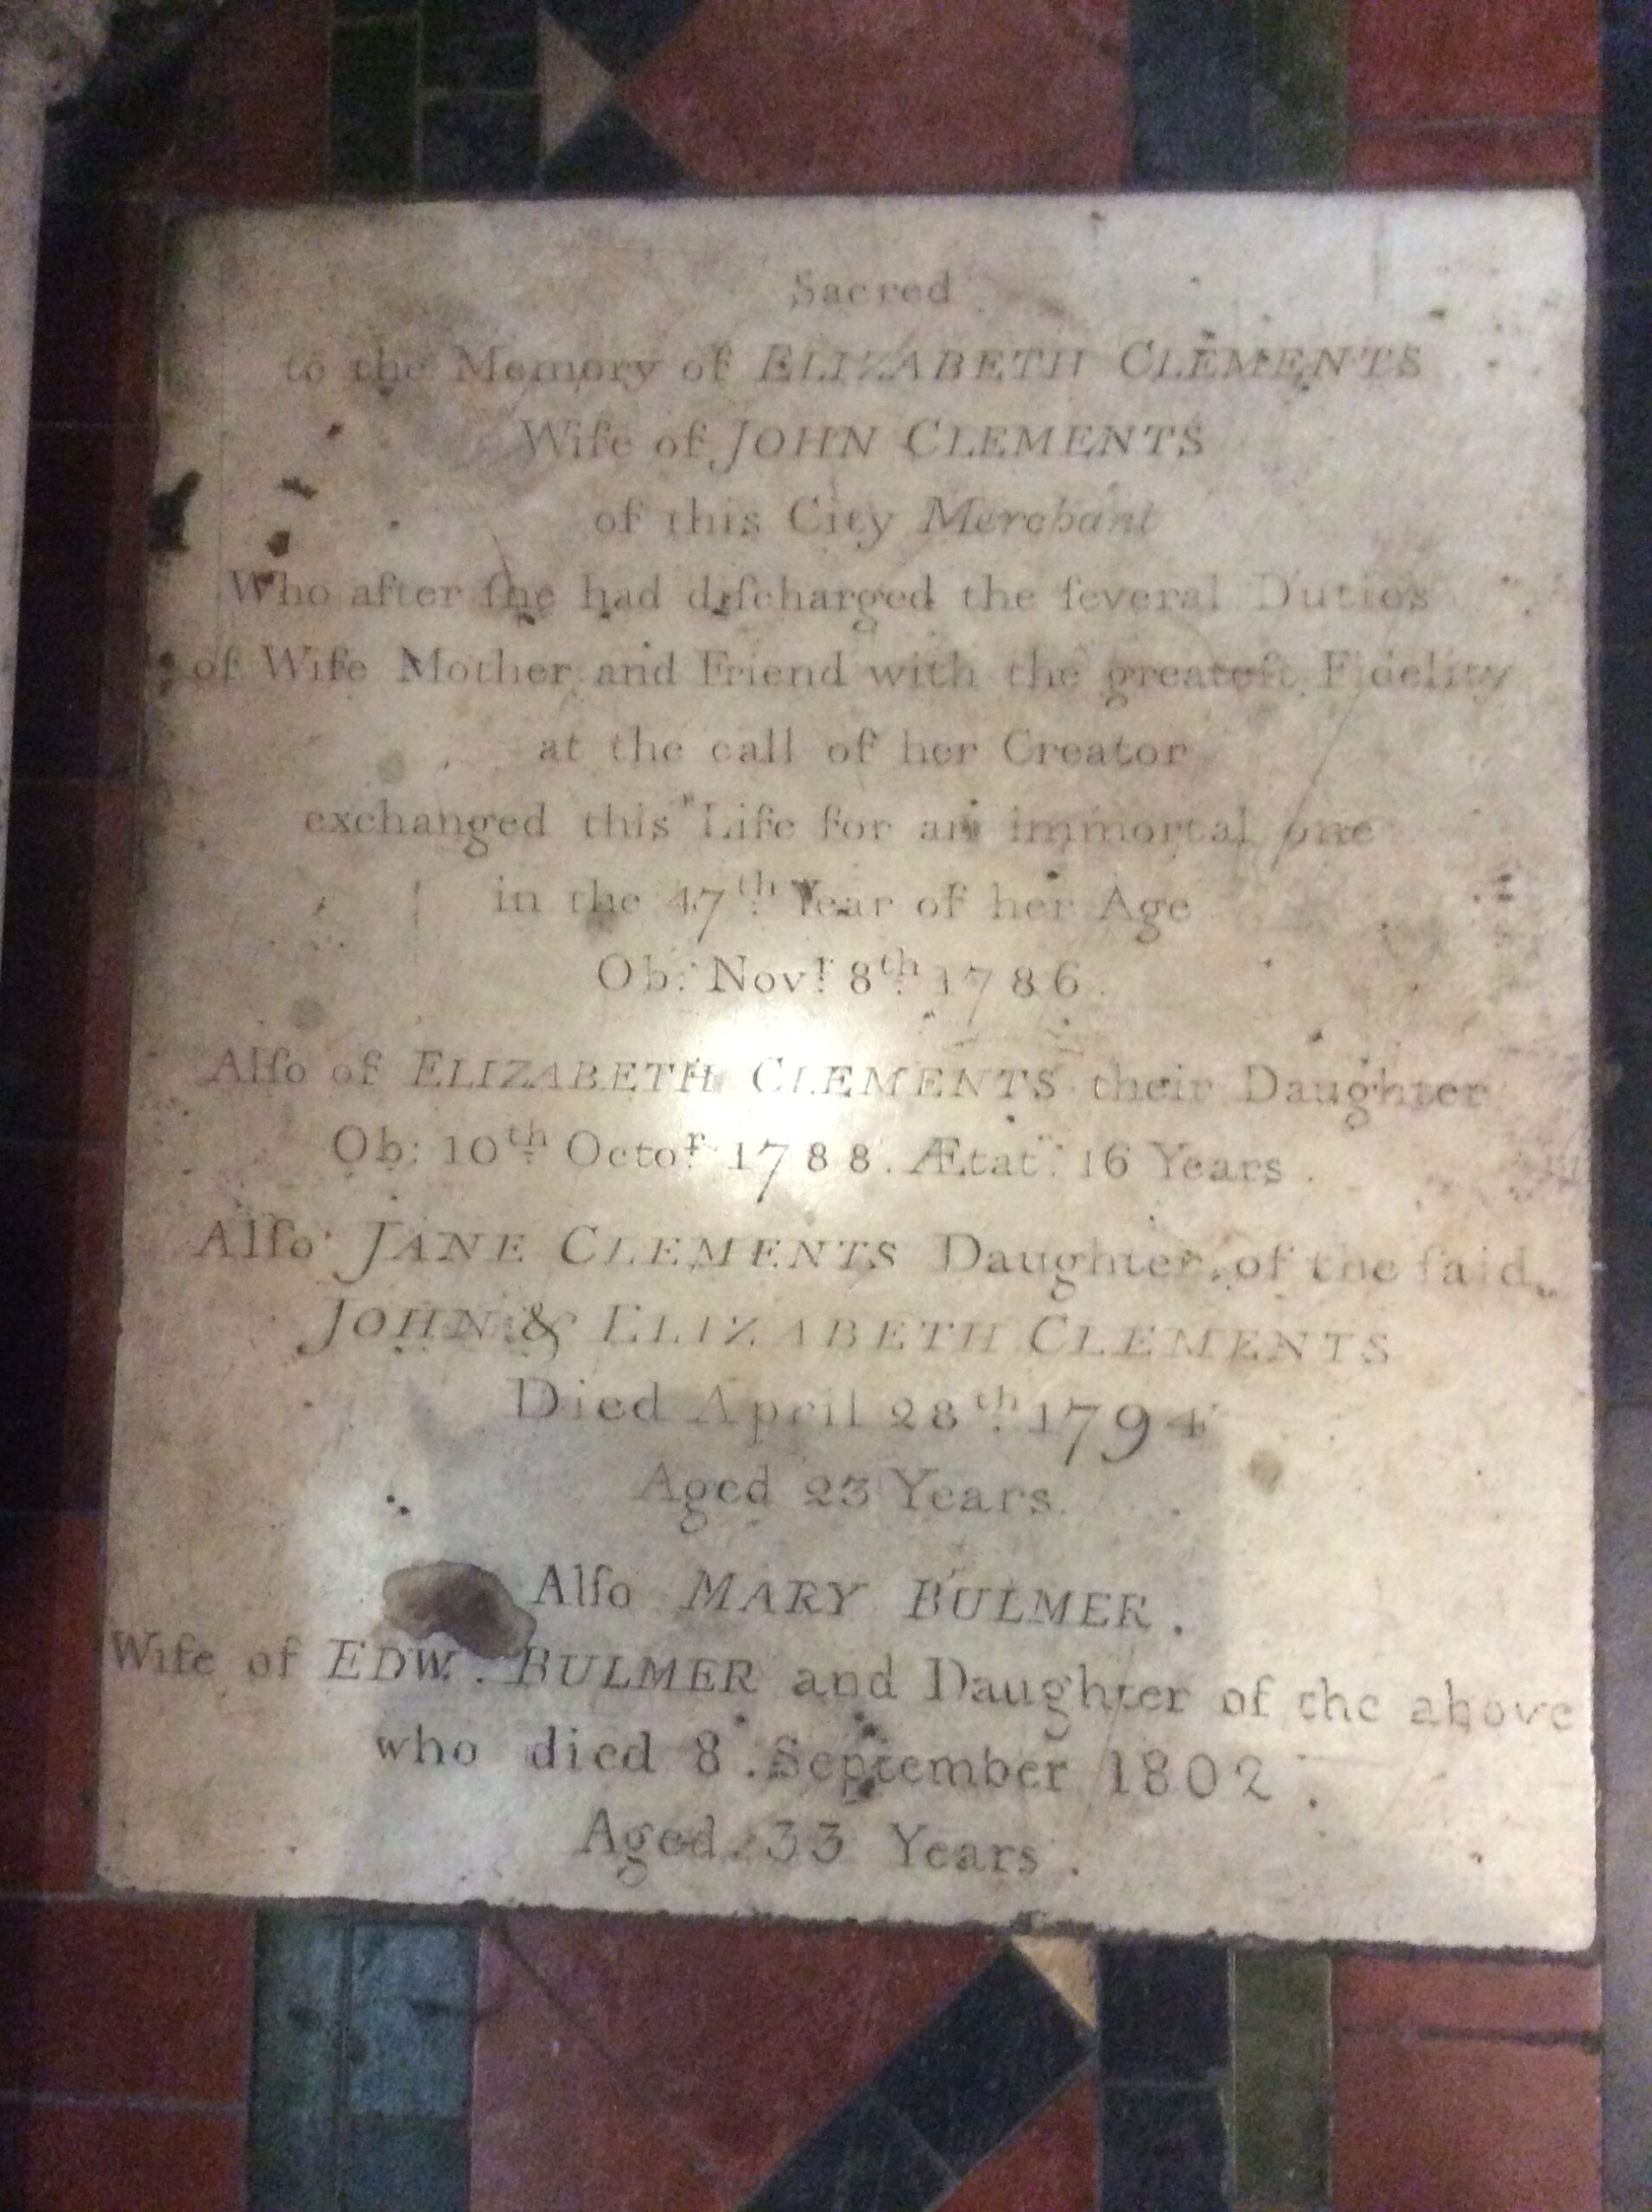 Sacred
to the Memory of ELIZABETH CLEMENTS
Wife of JOHN CLEMENTS
of this City Merchant
Who after ſhe had diſcharged the ſeveral Duties
of Wife Mother and Friend with the greateſt Fidelity
at the call of her Creator
exchanged this Life for an immortal one
in the 47th Year of her Age
Ob: Novr 8th 1786.
Alſo of ELIZABETH CLEMENTS their Daughter
Ob: 10th Octor 1788. Ætat: 16 Years.
Alſo JANE CLEMENTS Daughter of the ſaid
JOHN & ELIZABETH CLEMENTS
Died April 28th 1794
Aged 23 Years.
Alſo MARY BULMER.
Wife of EDW. BULMER and Daughter of the above
who died 8. September 1802.
Aged 33 Years.